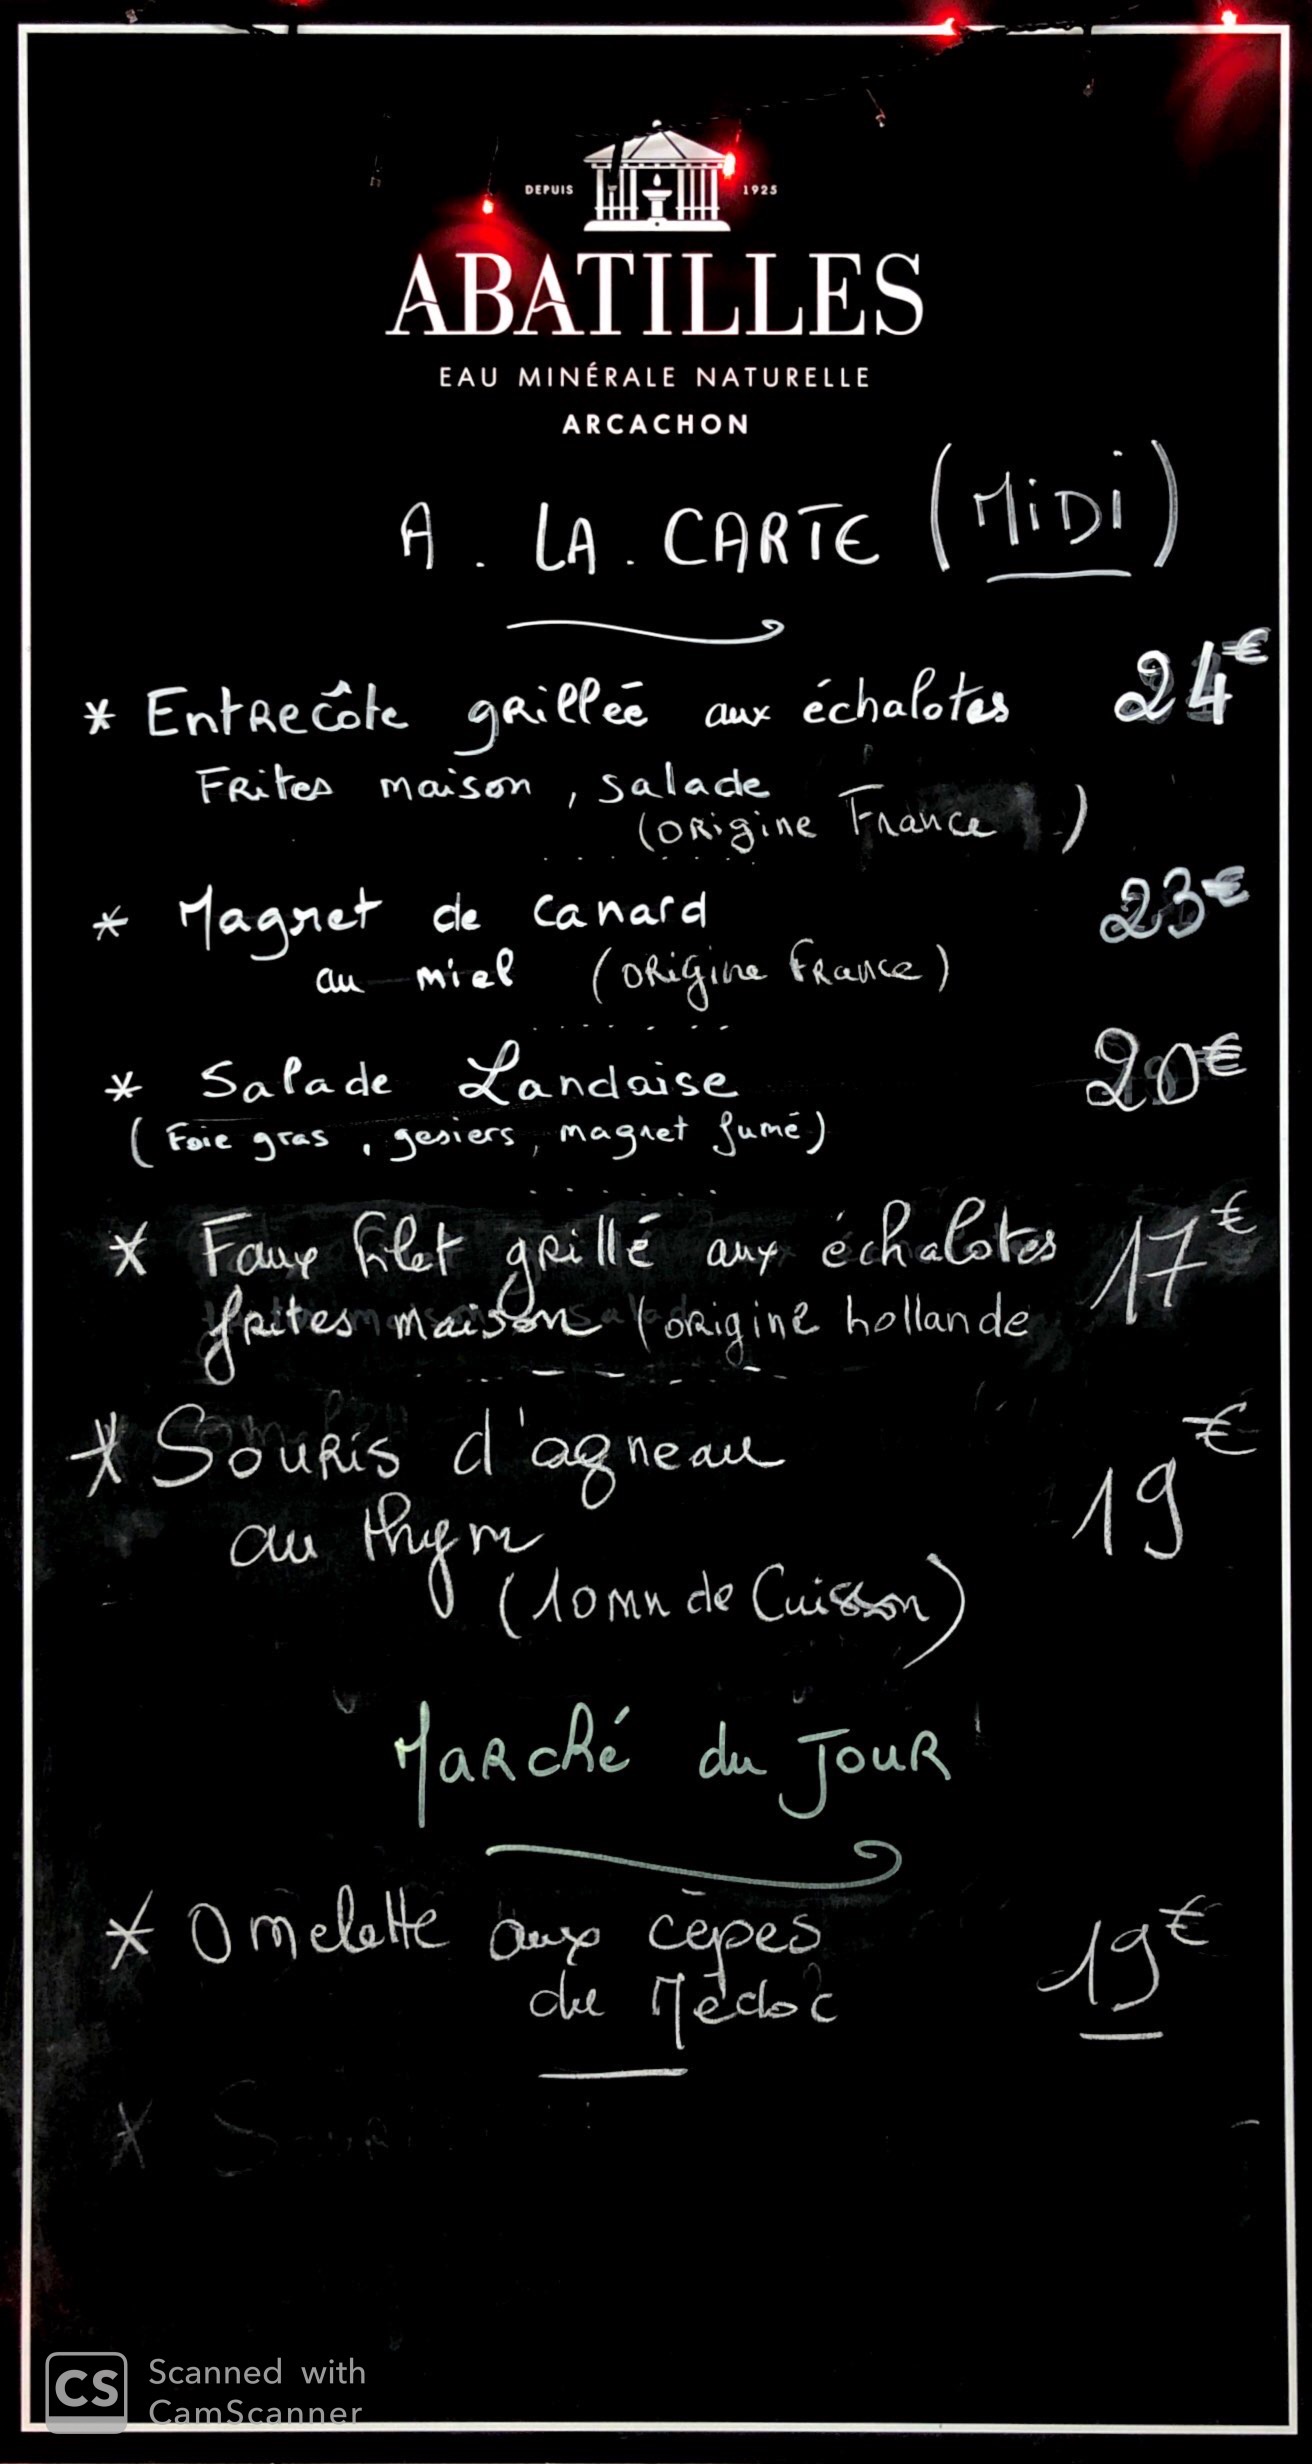 DEPUIS 1925
ABATILLES
EAU MINÉRALE NATURELLE
ARCACHON
A . LA . CARTE (MiDi)
* Entrecôte grillée aux échalotes 24€
Frites maison, salade
(origine France )
* Magret de canard 23€
au miel (origine France)
* Salade Landaise 20€
(Foie gras, gesiers, magret fumé)
* Faux filet grillé aux échalotes 17€
frites maison (origine hollande
* Souris d'agneau 19€
au thym
(10mn de Cuisson)
Marché du jour
* Omelette aux cèpes 19€
du Médoc
*
CS Scanned with
CamScanner